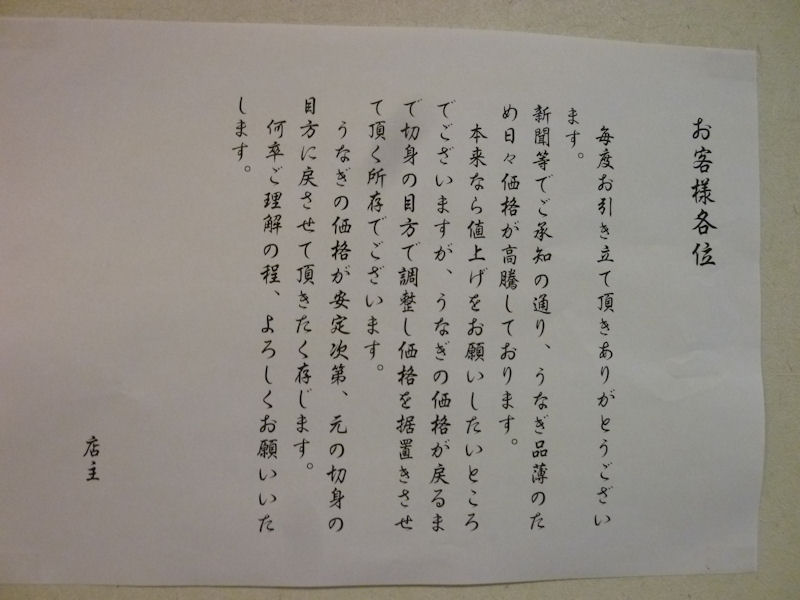 お客様各位
毎度お引き立て頂きありがとうござい
ます。
新聞等でご承知の通り、うなぎ品薄のた
め日々価格が高騰しております。
本来なら値上げをお願いしたいところ
でございますが、うなぎの価格が戻るま
で切身の目方で調整し価格を据置きさせ
て頂く所存でございます。
うなぎの価格が安定次第、元の切身の
目方に戻させて頂きたく存じます。
何卒ご理解の程、よろしくお願いいた
します。
店主